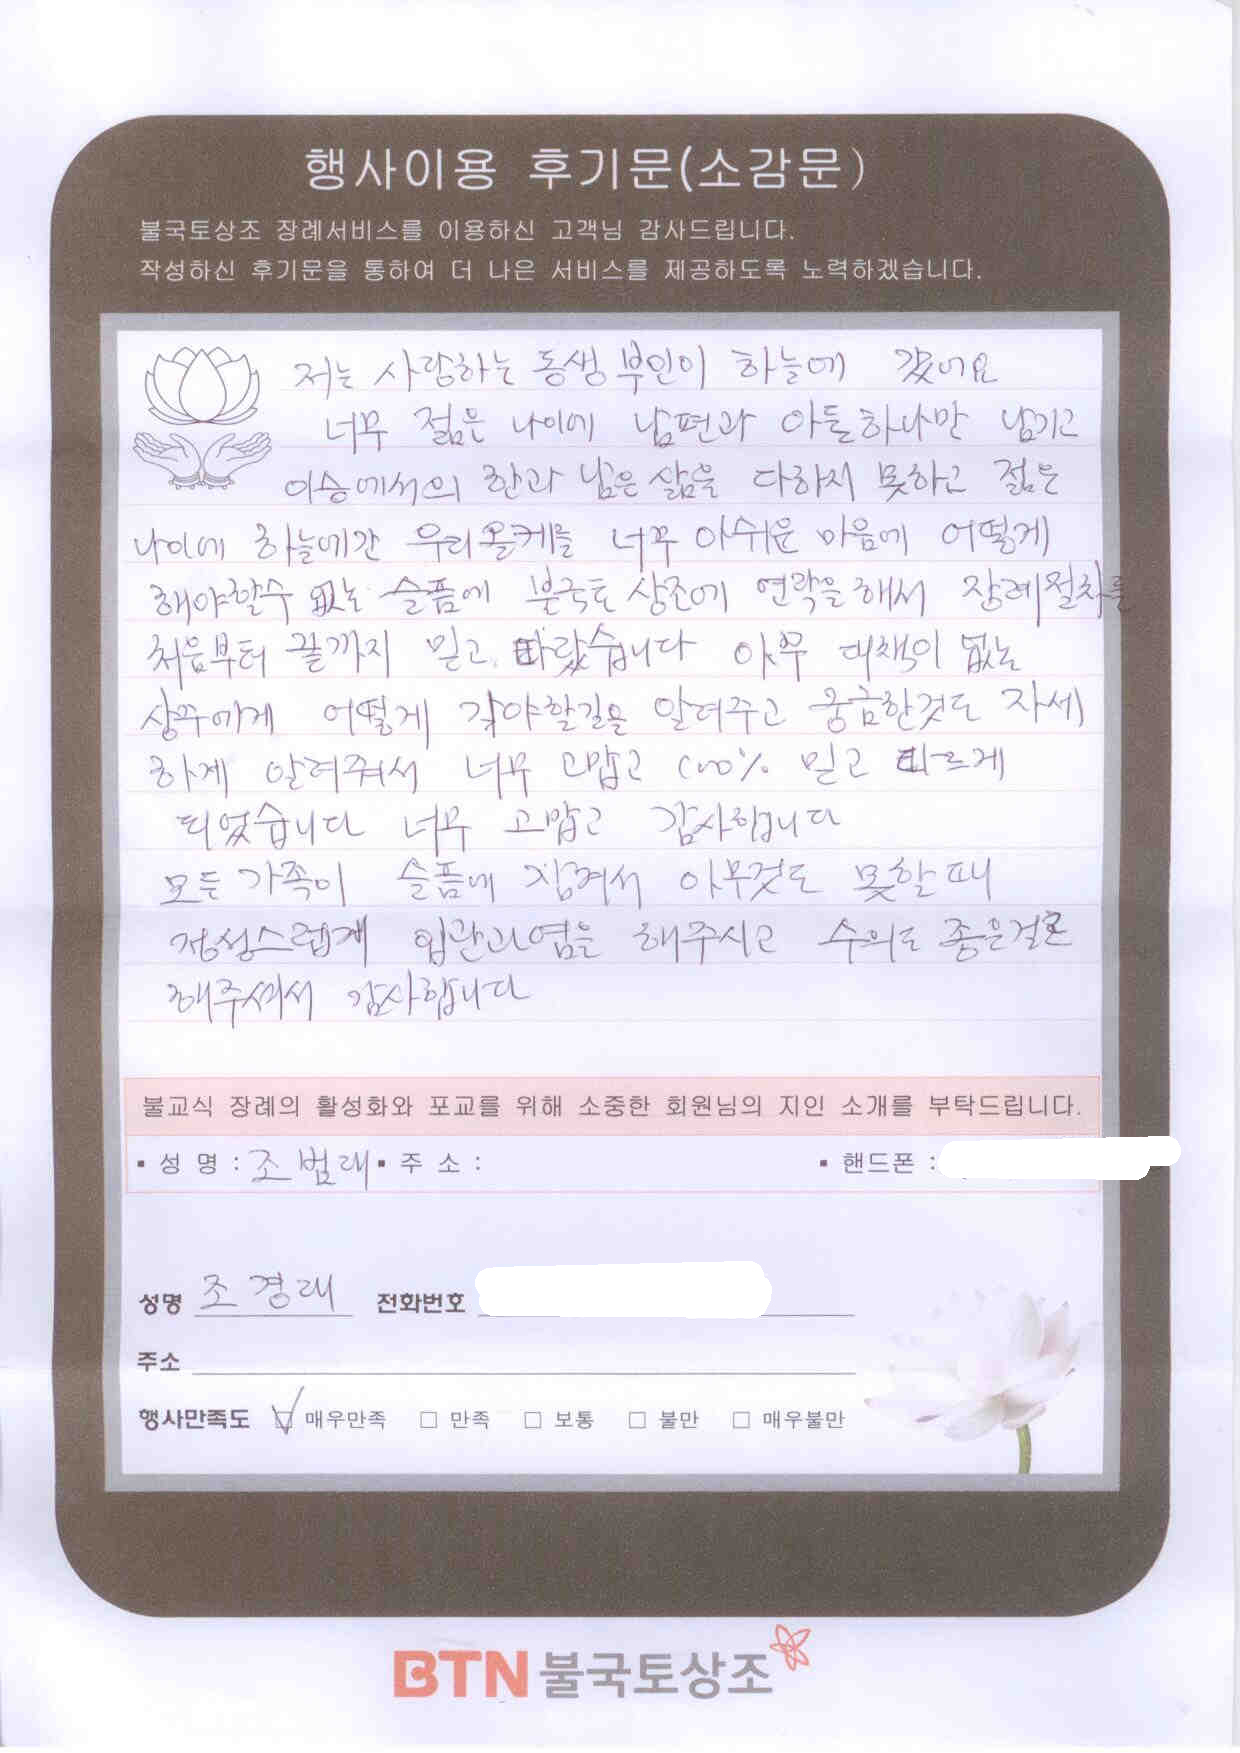 행사이용 후기문(소감문)
불국토상조 장례서비스를 이용하신 고객님 감사드립니다.
작성하신 후기문을 통하여 더 나은 서비스를 제공하도록 노력하겠습니다.
저는 사랑하는 동생 부인이 하늘에 갔어요
너무 젊은 나이에 남편과 아들하나만 남기고
이승에서의 한과 남은 삶을 다하지 못하고 젊은
나이에 하늘에간 우리올케를 너무 아쉬운 마음에 어떻게
해야할수 없는 슬픔에 불국토 상조에 연락을해서 장례절차를
처음부터 끝까지 믿고 따랐습니다 아무 대책이 없는
상주에게 어떻게 가야할길을 알려주고 궁금한것도 자세
하게 알려줘서 너무 고맙고 100% 믿고 따르게
되었습니다 너무 고맙고 감사합니다
모든 가족이 슬픔에 잠겨서 아무것도 못할때
정성스럽게 입관과염을 해주시고 수의도 좋은걸로
해주셔서 감사합니다
불교식 장례의 활성화와 포교를 위해 소중한 회원님의 지인 소개를 부탁드립니다.
▪ 성 명 : 조범래 ▪ 주 소 : ▪ 핸드폰 :
성명 조경래 전화번호
주소
행사만족도 ☑ 매우만족 □ 만족 □ 보통 □ 불만 □ 매우불만
BTN 불국토상조